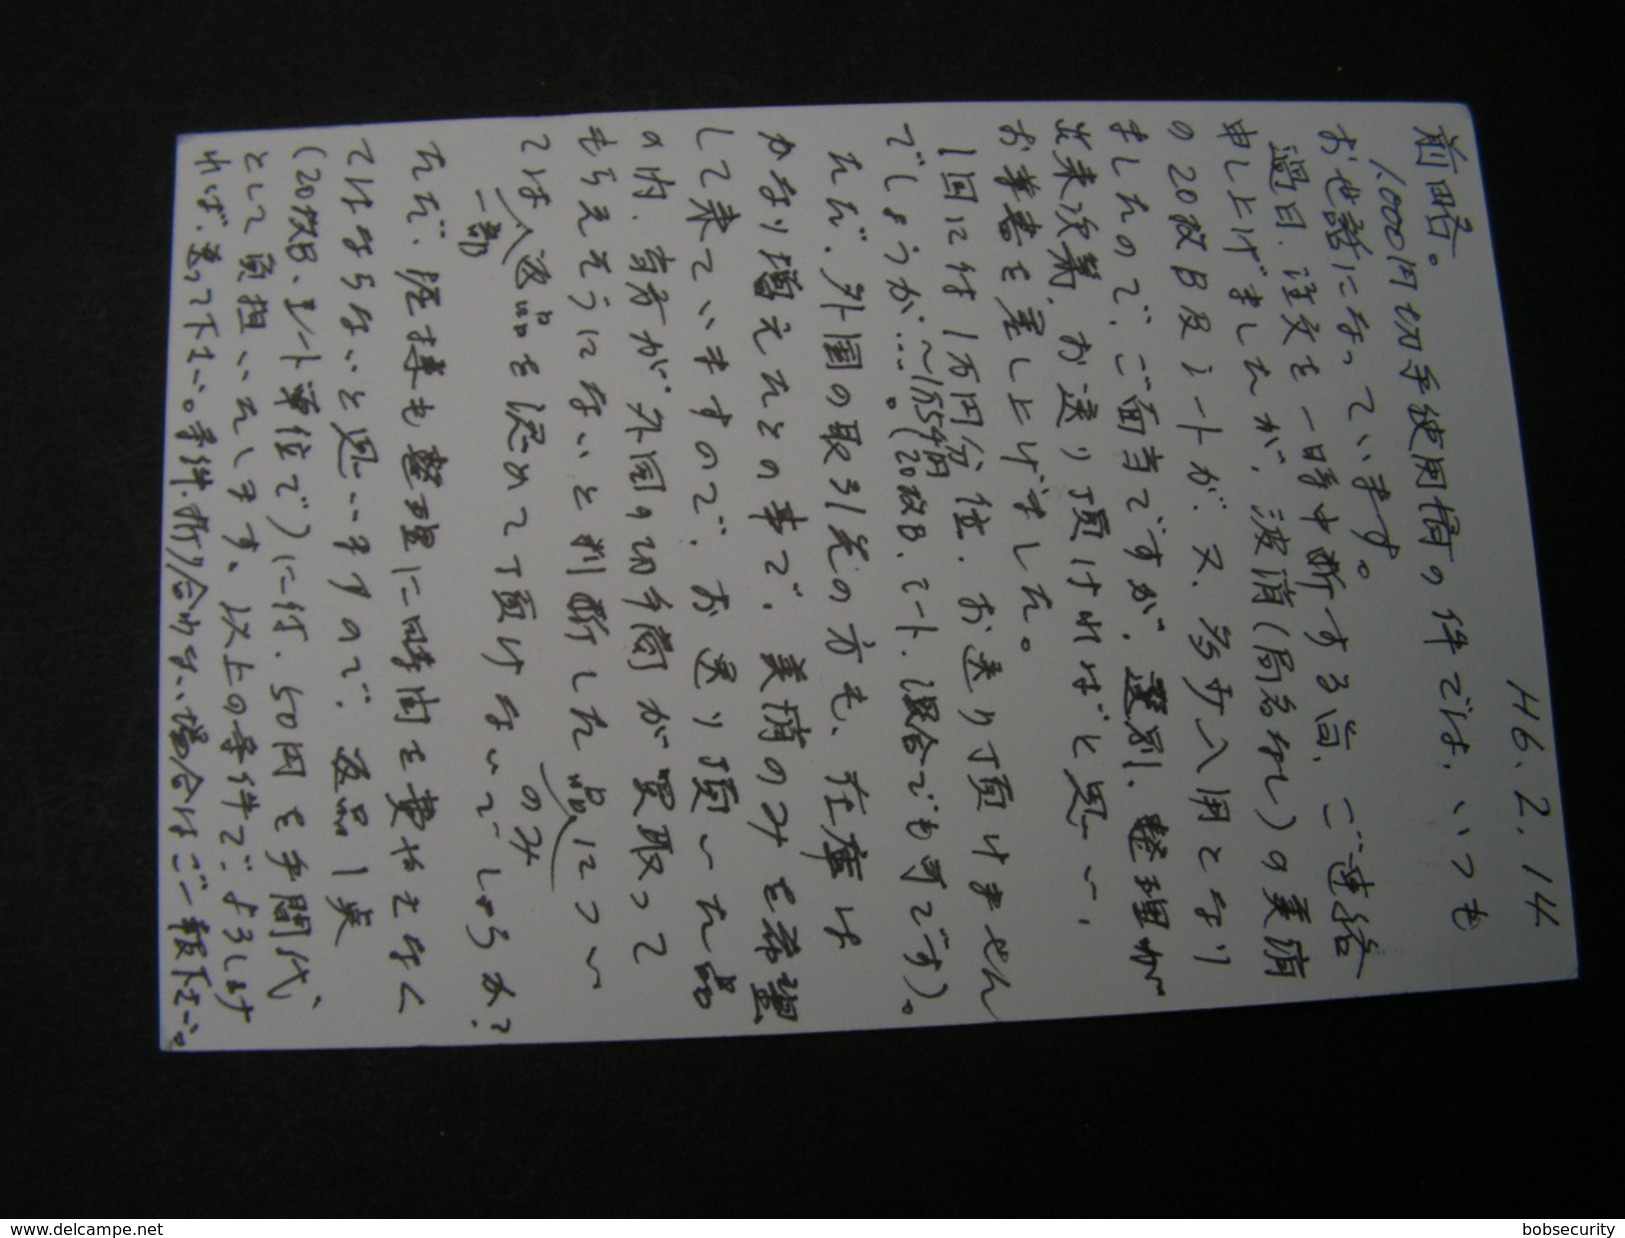 H6.2.14
前略。
1,000円切手使用済の件では、いつも
お世話になっています。
過日、注文を一時中断する旨、ご連絡
申し上げましたが、波消(局名なし)の美消
の20枚B及シートが、又、多少入用となり
ましたので、ご面当ですが、選別、整理が
出来次第、お送り頂ければと思い、
お葉書を差し上げました。
1回には1万円分位、お送り頂けません
～1万5千円
でしょうが…。(20枚B、シート、混合でも可です)。
ただ、外国の取引先の方も、在庫は
かなり増えたとの事で、美消のみを希望
して来ていますので、お送り頂いた品
の内、当方が外国の切手商が買取って
もらえそうにないと判断した品についい
のみ
ては返品を認めて頂けないでしょうか?
一部
ただ、経様も整理に時間を費やさなく
てはならないと思いますので、返品1点
(20枚B、シート単位で)に付、50円を手間代、
として負担いたします。以上の条件でよろしけ
れば、送って下さい。条件、折り合わない場合はご一報下さい。
www.delcampe.net
bobsecurity